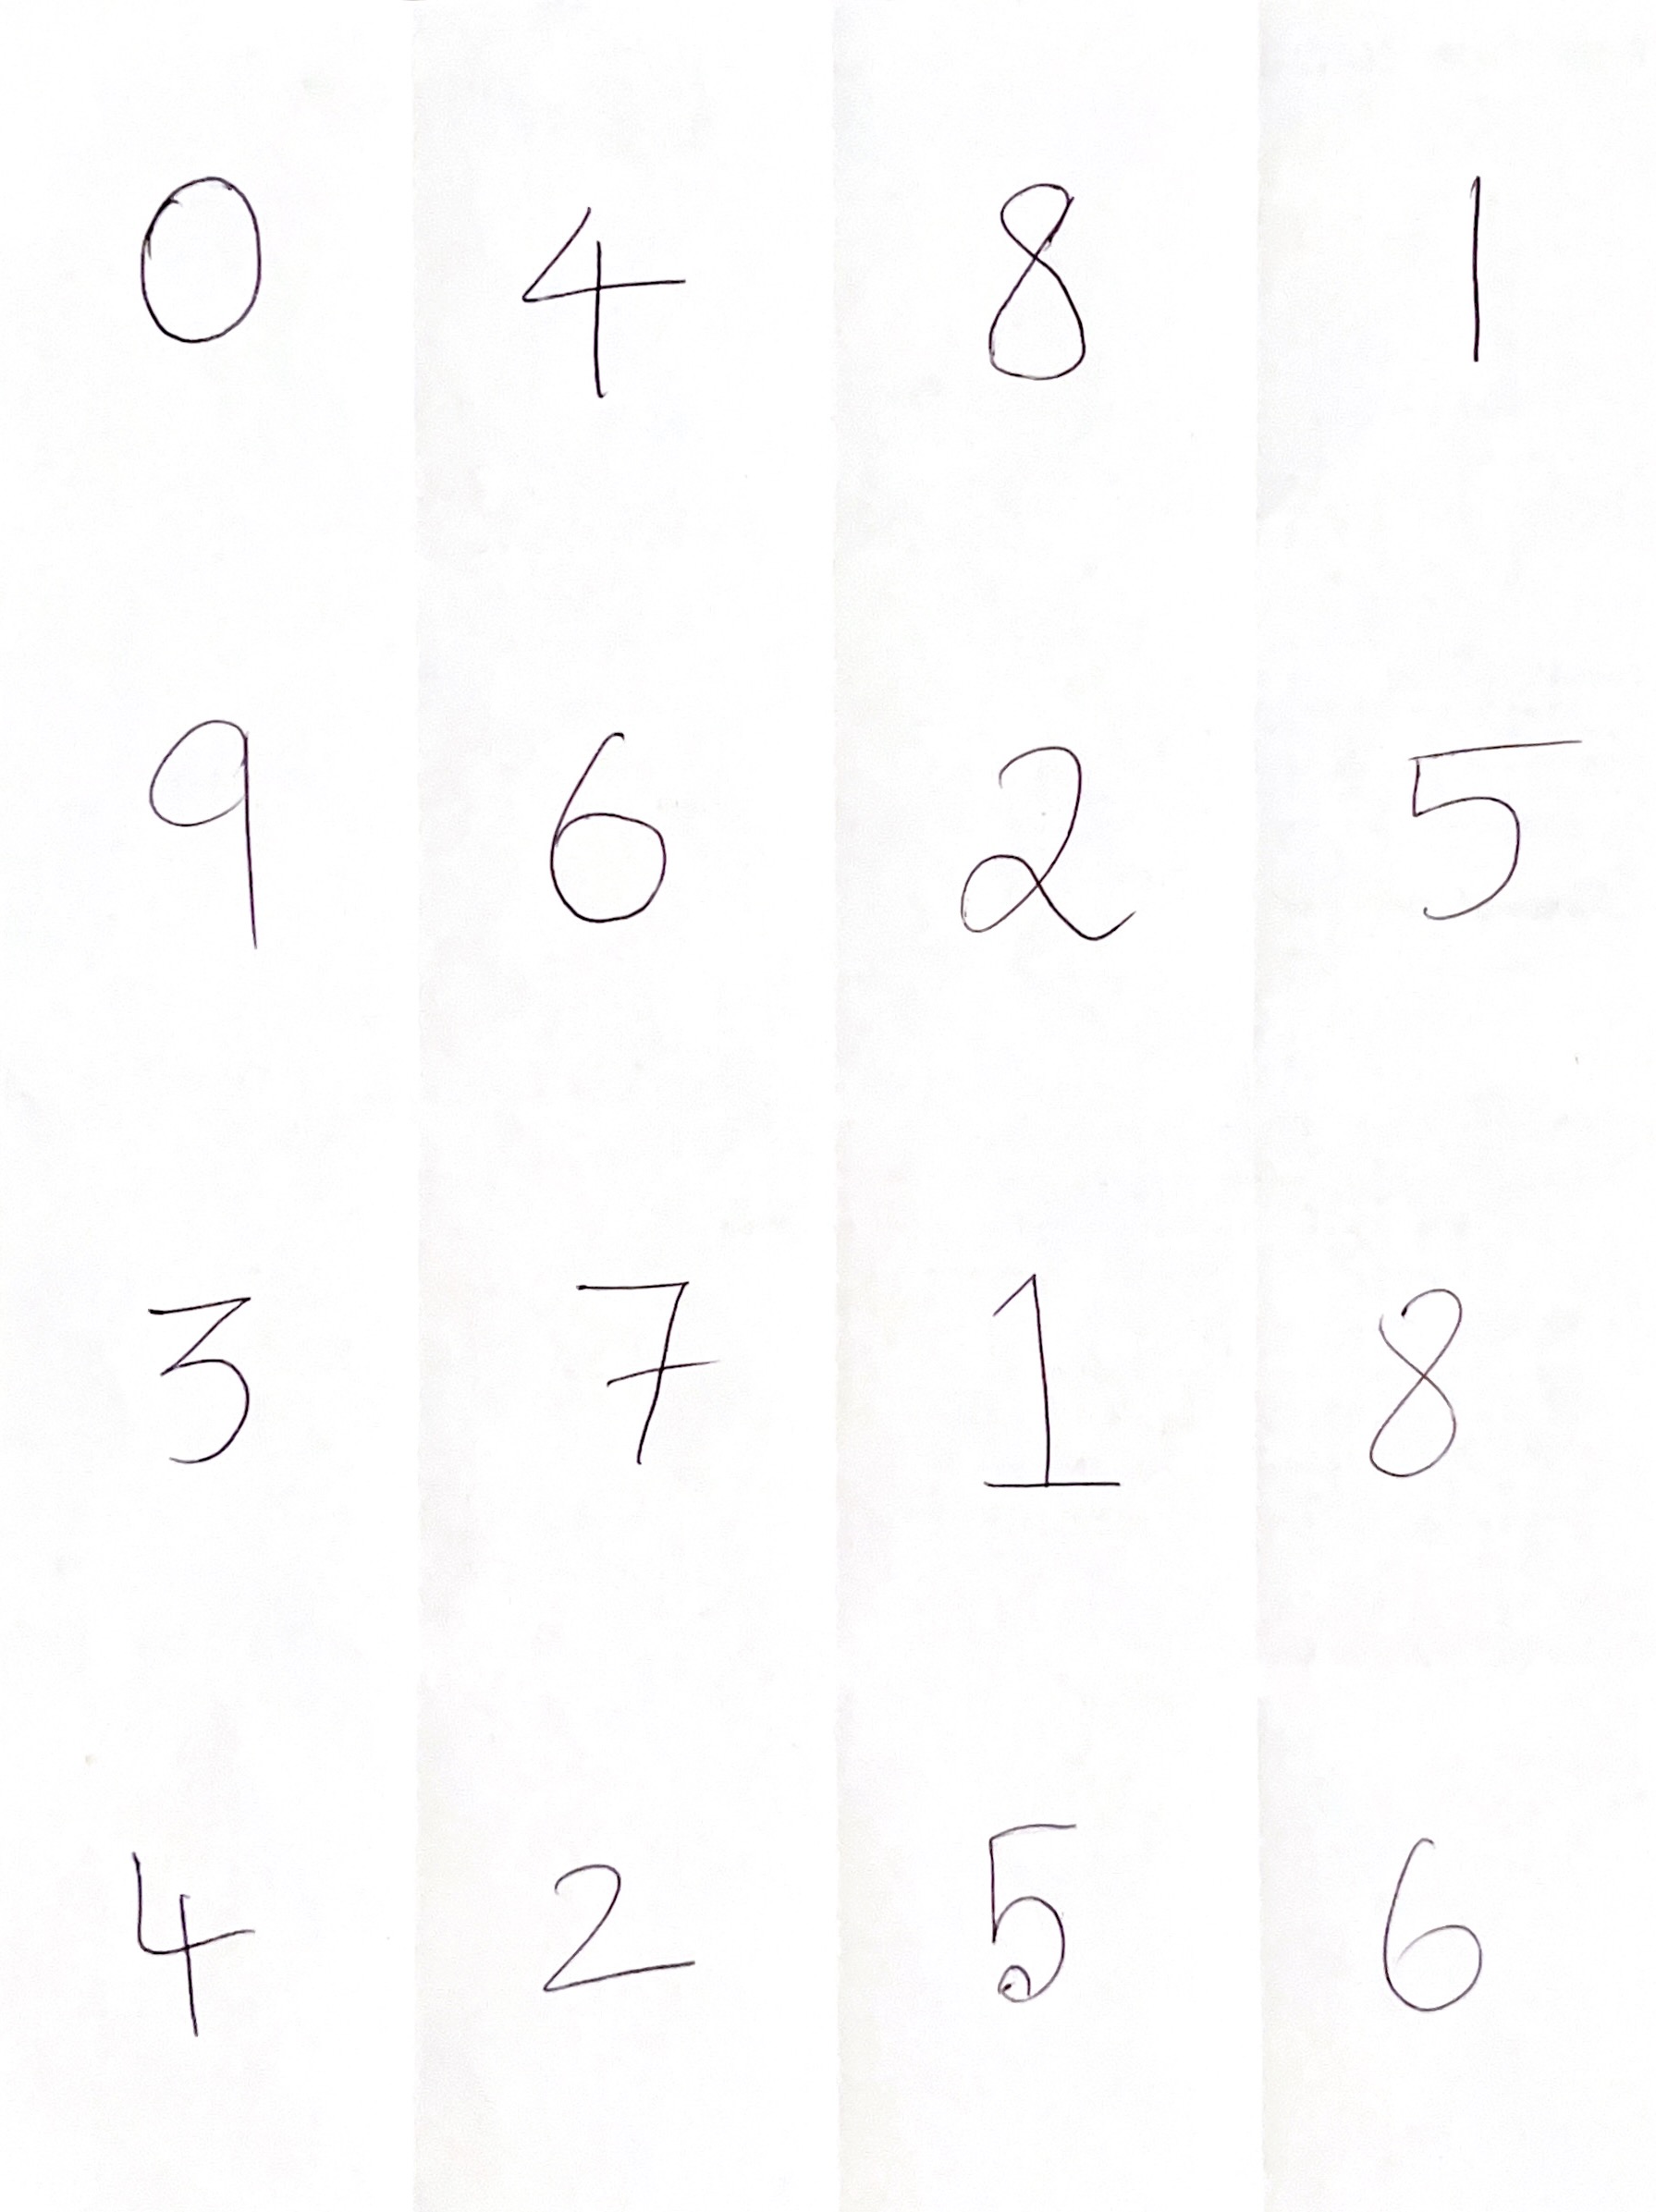 0 4 8 1
9 6 2 5
3 7 1 8
4 2 5 6